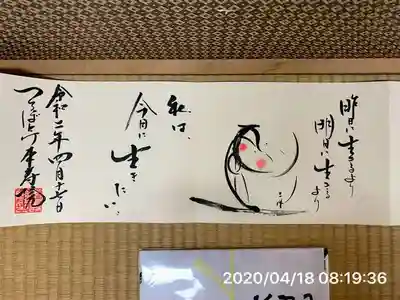 昨日に生きるより
明日に生きるより
私は、
今日に
生きたい…
令和二年四月十七日
2020/04/18 08:19:36